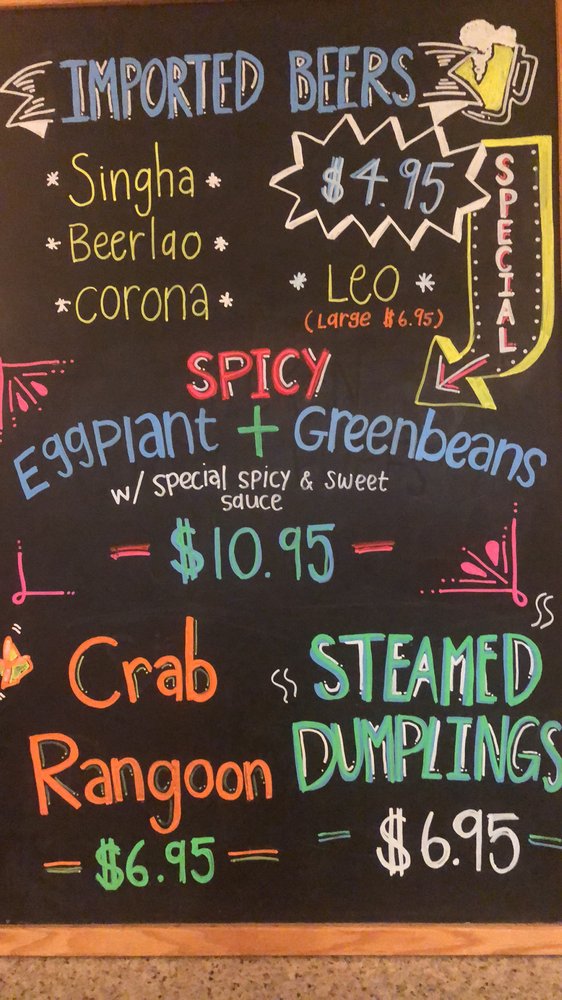 IMPORTED BEERS
* Singha *
* Beerlao *
* corona *
$4.95
* LEO *
(Large $6.95)
SPECIAL
SPICY
Eggplant + Greenbeans
w/ special spicy & sweet
sauce
- $10.95 -
Crab
Rangoon
- $6.95 -
STEAMED
DUMPLINGS
- $6.95 -